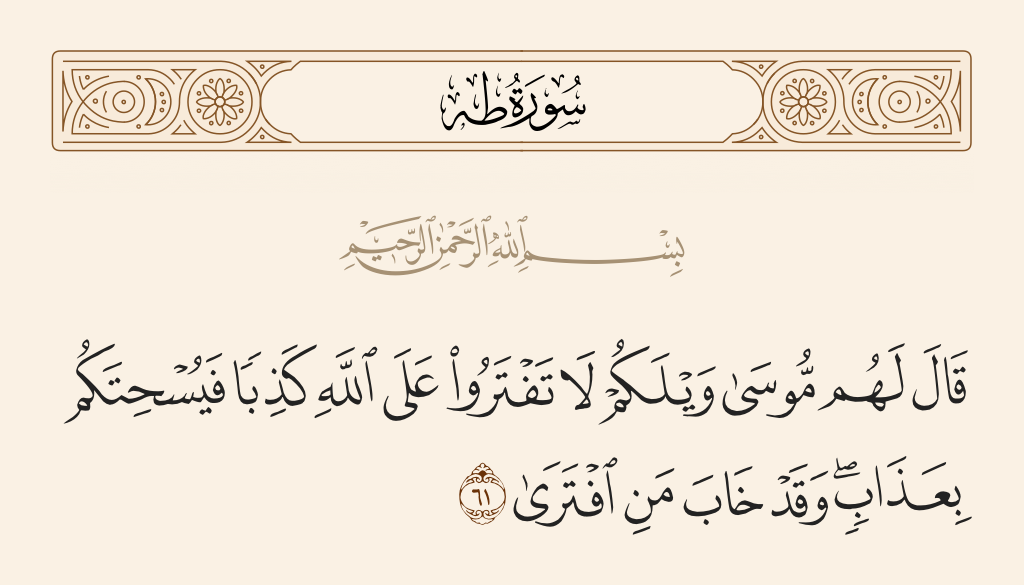 سُورَةُ طه
بِسْمِ ٱللَّهِ ٱلرَّحْمَٰنِ ٱلرَّحِيمِ
قَالَ لَهُم مُّوسَىٰ وَيْلَكُمْ لَا تَفْتَرُوا۟ عَلَى ٱللَّهِ كَذِبًا فَيُسْحِتَكُم
بِعَذَابٍ ۖ وَقَدْ خَابَ مَنِ ٱفْتَرَىٰ ٦١